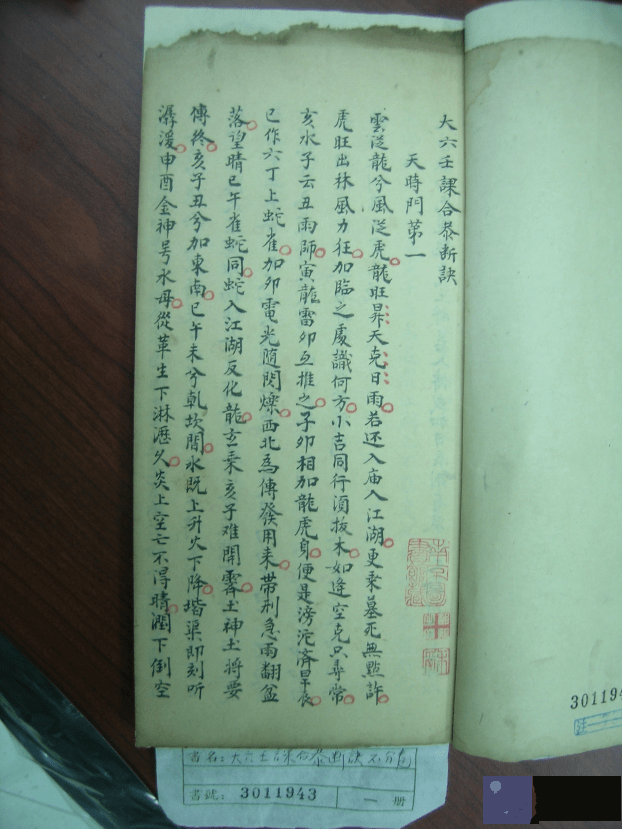 大六壬課合恭断訣
天時門第一
雲从龍兮風从虎龍旺昇天克日雨若还入庙入江湖更乘墓死無點許
虎旺出林風力狂加臨之處識何方小吉同行須拔木如逢空克只尋常
亥水子云丑雨師寅龍雷卯互推之子卯相加龍虎身便是滂沱济旱衰
巳作六丁上蛇雀加卯電光随閃爍西北為傳發用来帶刑急雨翻盆
落望晴巳午雀蛇同蛇入江湖反化龍玄乘亥子难開霽土神土将要
傳終亥子丑兮加東南巳午未兮乾坎間水既上升火下降堦渠即刻听
潺湲申酉金神号水母從革生下淋漓久炎上空亡不得晴潤下倒空
書名：大六壬課合恭断訣不分卷
書號：3011943 一 册
301194